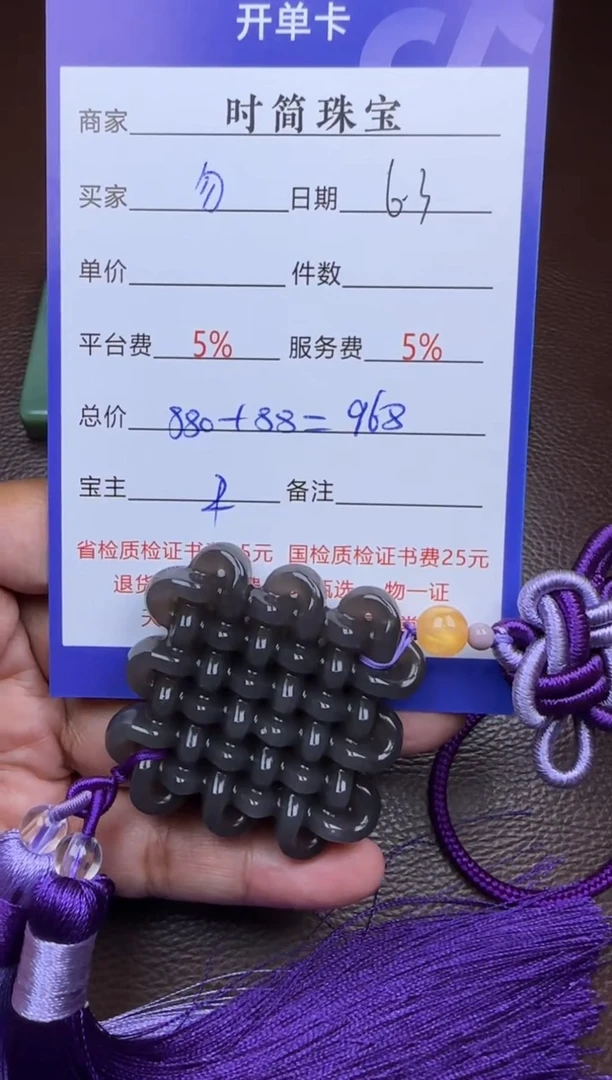 开单卡
商家 时简珠宝
买家 勿 日期 6.3
单价 件数
平台费 5% 服务费 5%
总价 880+88=968
宝主 备注
省检质检证书 5元 国检质检证书费25元
退货 甄选 物一证
天